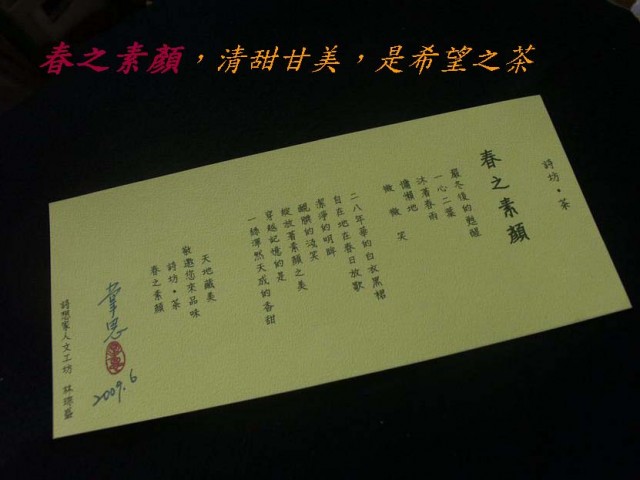 春之素顏，清甜甘美，是希望之茶
詩坊・茶
春之素顏
嚴冬後的甦醒
一心二葉
沐著春雨
慵懶地
微微笑
二八年華的白衣黑裙
自在地在春日放歌
潔淨的明眸
靦腆的淺笑
綻放著素顏之美
穿越記憶的是
一縷渾然天成的香甜
天地藏美
敬邀您來品味
詩坊・茶
春之素顏
2009.6
詩想家人文工坊 林